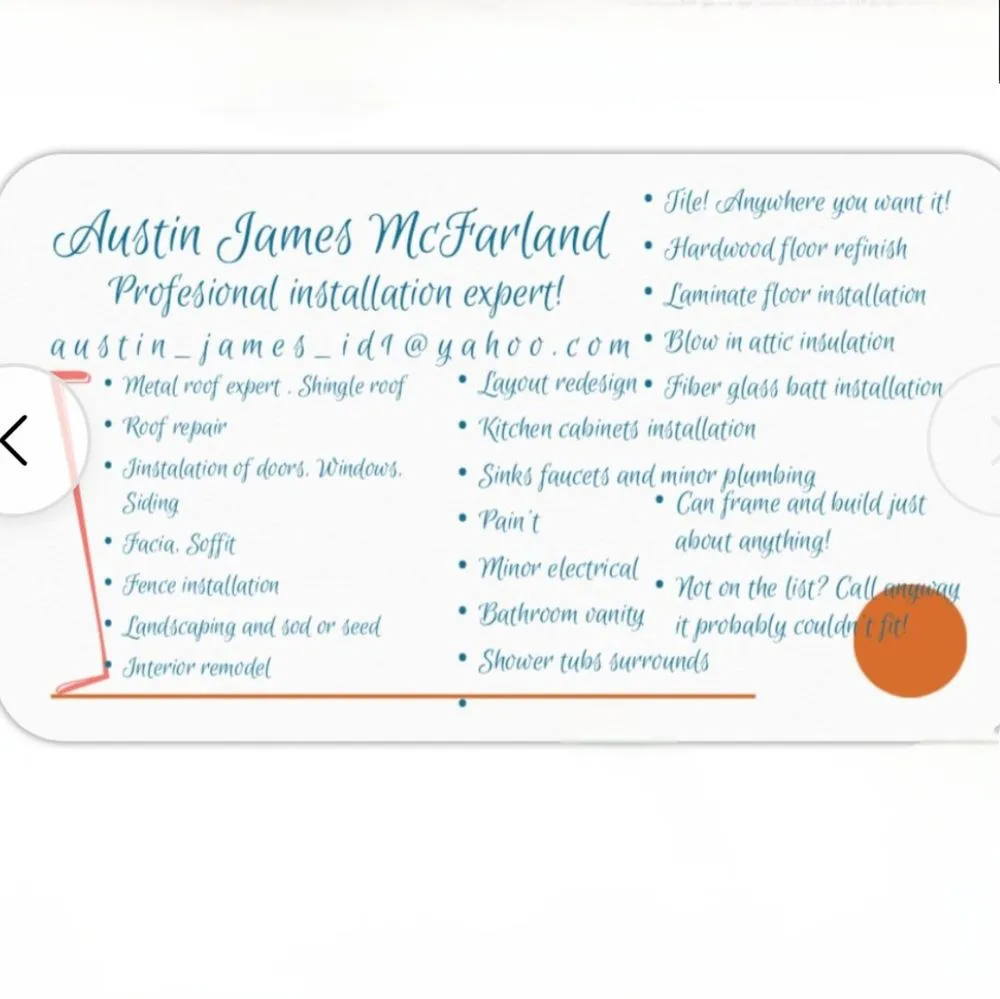 Austin James McFarland
Profesional installation expert!
austin_james_id1@yahoo.com
• Metal roof expert . Shingle roof
• Roof repair
• Iinstalation of doors. Windows.
Siding
• Facia. Soffit
• Fence installation
• Landscaping and sod or seed
• Interior remodel
• Layout redesign
• Kitchen cabinets installation
• Sinks faucets and minor plumbing
• Pain't
• Minor electrical
• Bathroom vanity
• Shower tubs surrounds
•
• Tile! Anywhere you want it!
• Hardwood floor refinish
• Laminate floor installation
• Blow in attic insulation
• Fiber glass batt installation
• Can frame and build just
about anything!
• Not on the list? Call anyway
it probably couldn't fit!